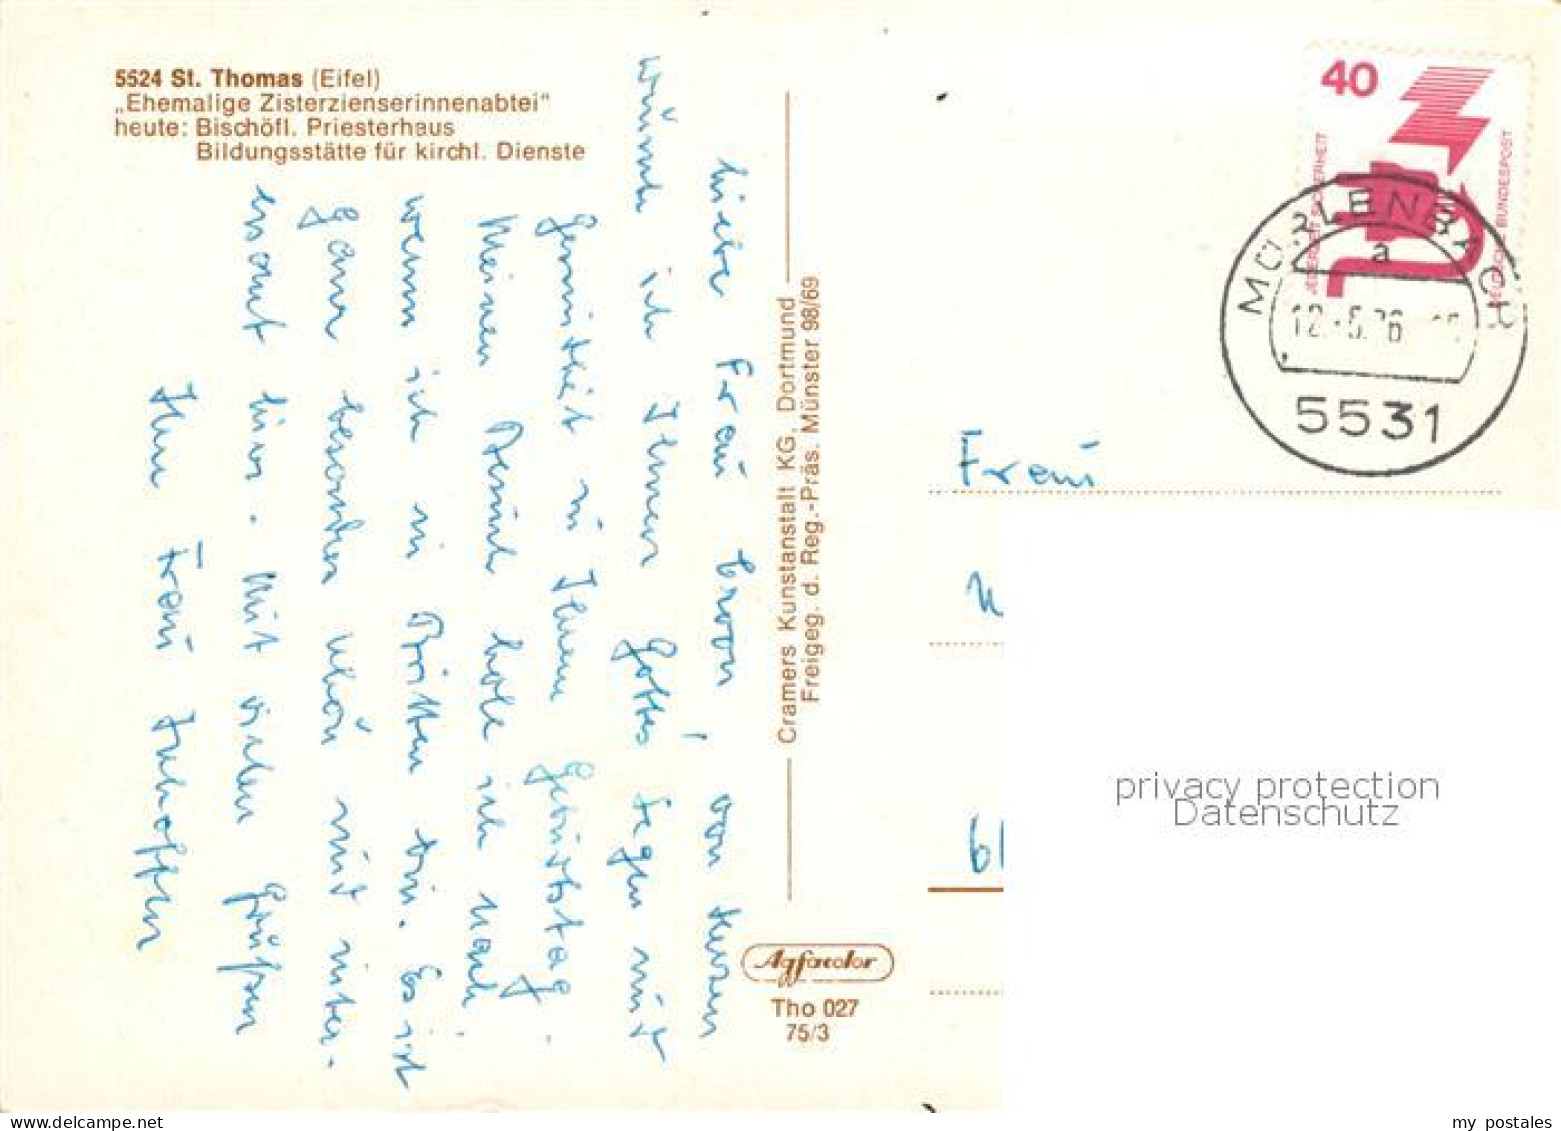 5524 St. Thomas (Eifel)
„Ehemalige Zisterzienserinnenabtei“
heute: Bischöfl. Priesterhaus
Bildungsstätte für kirchl. Dienste
Liebe Frau, von Herzen
wünsch ich Ihnen Gottes Segen und
Gesundheit zu Ihrem Geburtstag.
Meinen Besuch hole ich nach,
wenn ich in Britten bin. Es ist
ganz besonders schön und inter-
essant hier. Mit vielen Grüßen
Ihre Frau
Cramers Kunstanstalt KG, Dortmund
Freigeg. d. Reg.-Präs. Münster 98/69
Agfacolor
Tho 027
75/3
40
JEDERZEIT SICHERHEIT
DEUTSCHE BUNDESPOST
MÜRLENBACH
a
12.-5.76
5531
Frau
61
privacy protection
Datenschutz
my postales